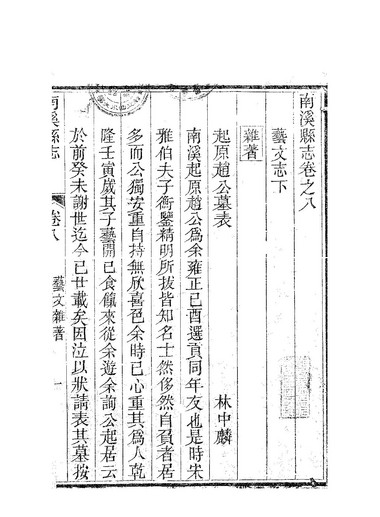 南溪縣志卷之八
藝文志下
雜著
起原趙公墓表
林中麟
南溪起原趙公爲余雍正己酉選貢同年友也是時宋
雅伯夫子衡鑒精明所拔皆知名士然侈然自負者居
多而公獨安重自持無欣喜色余時已心重其爲人乾
隆壬寅歲其子藝開已食餼來從余遊余詢公起居云
於前癸未謝世迄今已廿載矣因泣以狀請表其墓按
南溪縣志
卷八
藝文雜著
一